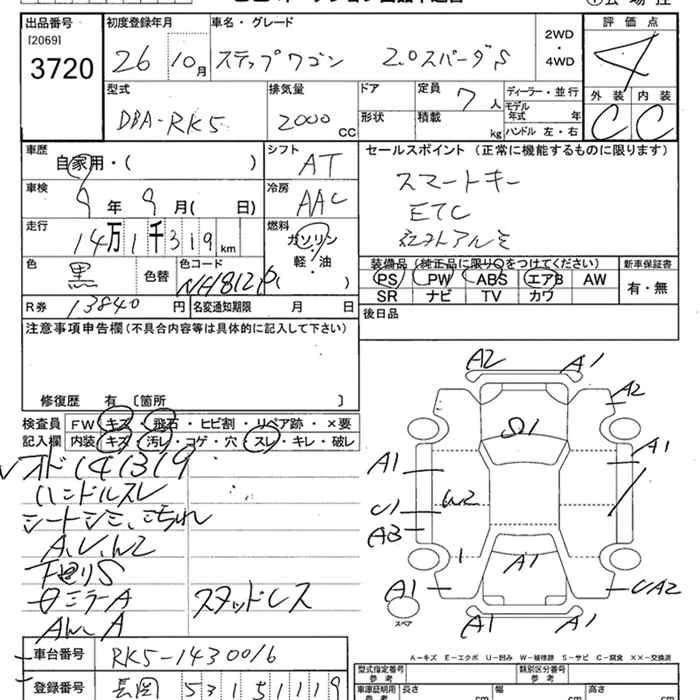 出品番号 初度登録年月 車名・グレード 2WD・4WD 評価点
[2069]
3720 26 10月 ステップワゴン 2.0スパーダS 4
型式 排気量 ドア 定員 7人 ディーラー・並行 外装 内装
DBA-RK5 2000cc 形状 積載 kg モデル年式 年 C C
ハンドル 左・右
車歴 自家用・( ) シフト AT セールスポイント (正常に機能するものに限ります)
車検 9年 9月( 日) 冷房 AAC スマートキー
ETC
走行 14万1千319km 燃料 ガソリン・軽・油
色 黒 色替 色コード NH812P 装備品(純正品に限り○をつけてください) 新車保証書
PS PW ABS エアB AW 有・無
SR ナビ TV カワ
R券 13840円 名変通知期限 月 日 後日品
注意事項申告欄(不具合内容等は具体的に記入して下さい)
修復歴 有 〔箇所 〕
検査員記入欄 FW キズ・飛石・ヒビ割・リペア跡・×要
内装 キズ・汚レ・コゲ・穴・スレ・キレ・破レ
オド141319
ハンドルスレ
シートシミ、こげれ
A,U,W2
下回りS
スタッドレス
A2 A1
A2
S1
A1 A1
U1 W2
A3
A1
A1 UA2
A1 A1
スペア
A-キズ E-エクボ U-凹み W-補修跡 S-サビ C-腐食 XX-交換済
車台番号 RK5-1430016
型式指定番号 参考 類別区分番号 参考
登録番号 長岡 531 51119
車庫証明用 参考 長さ cm 幅 cm 高さ cm